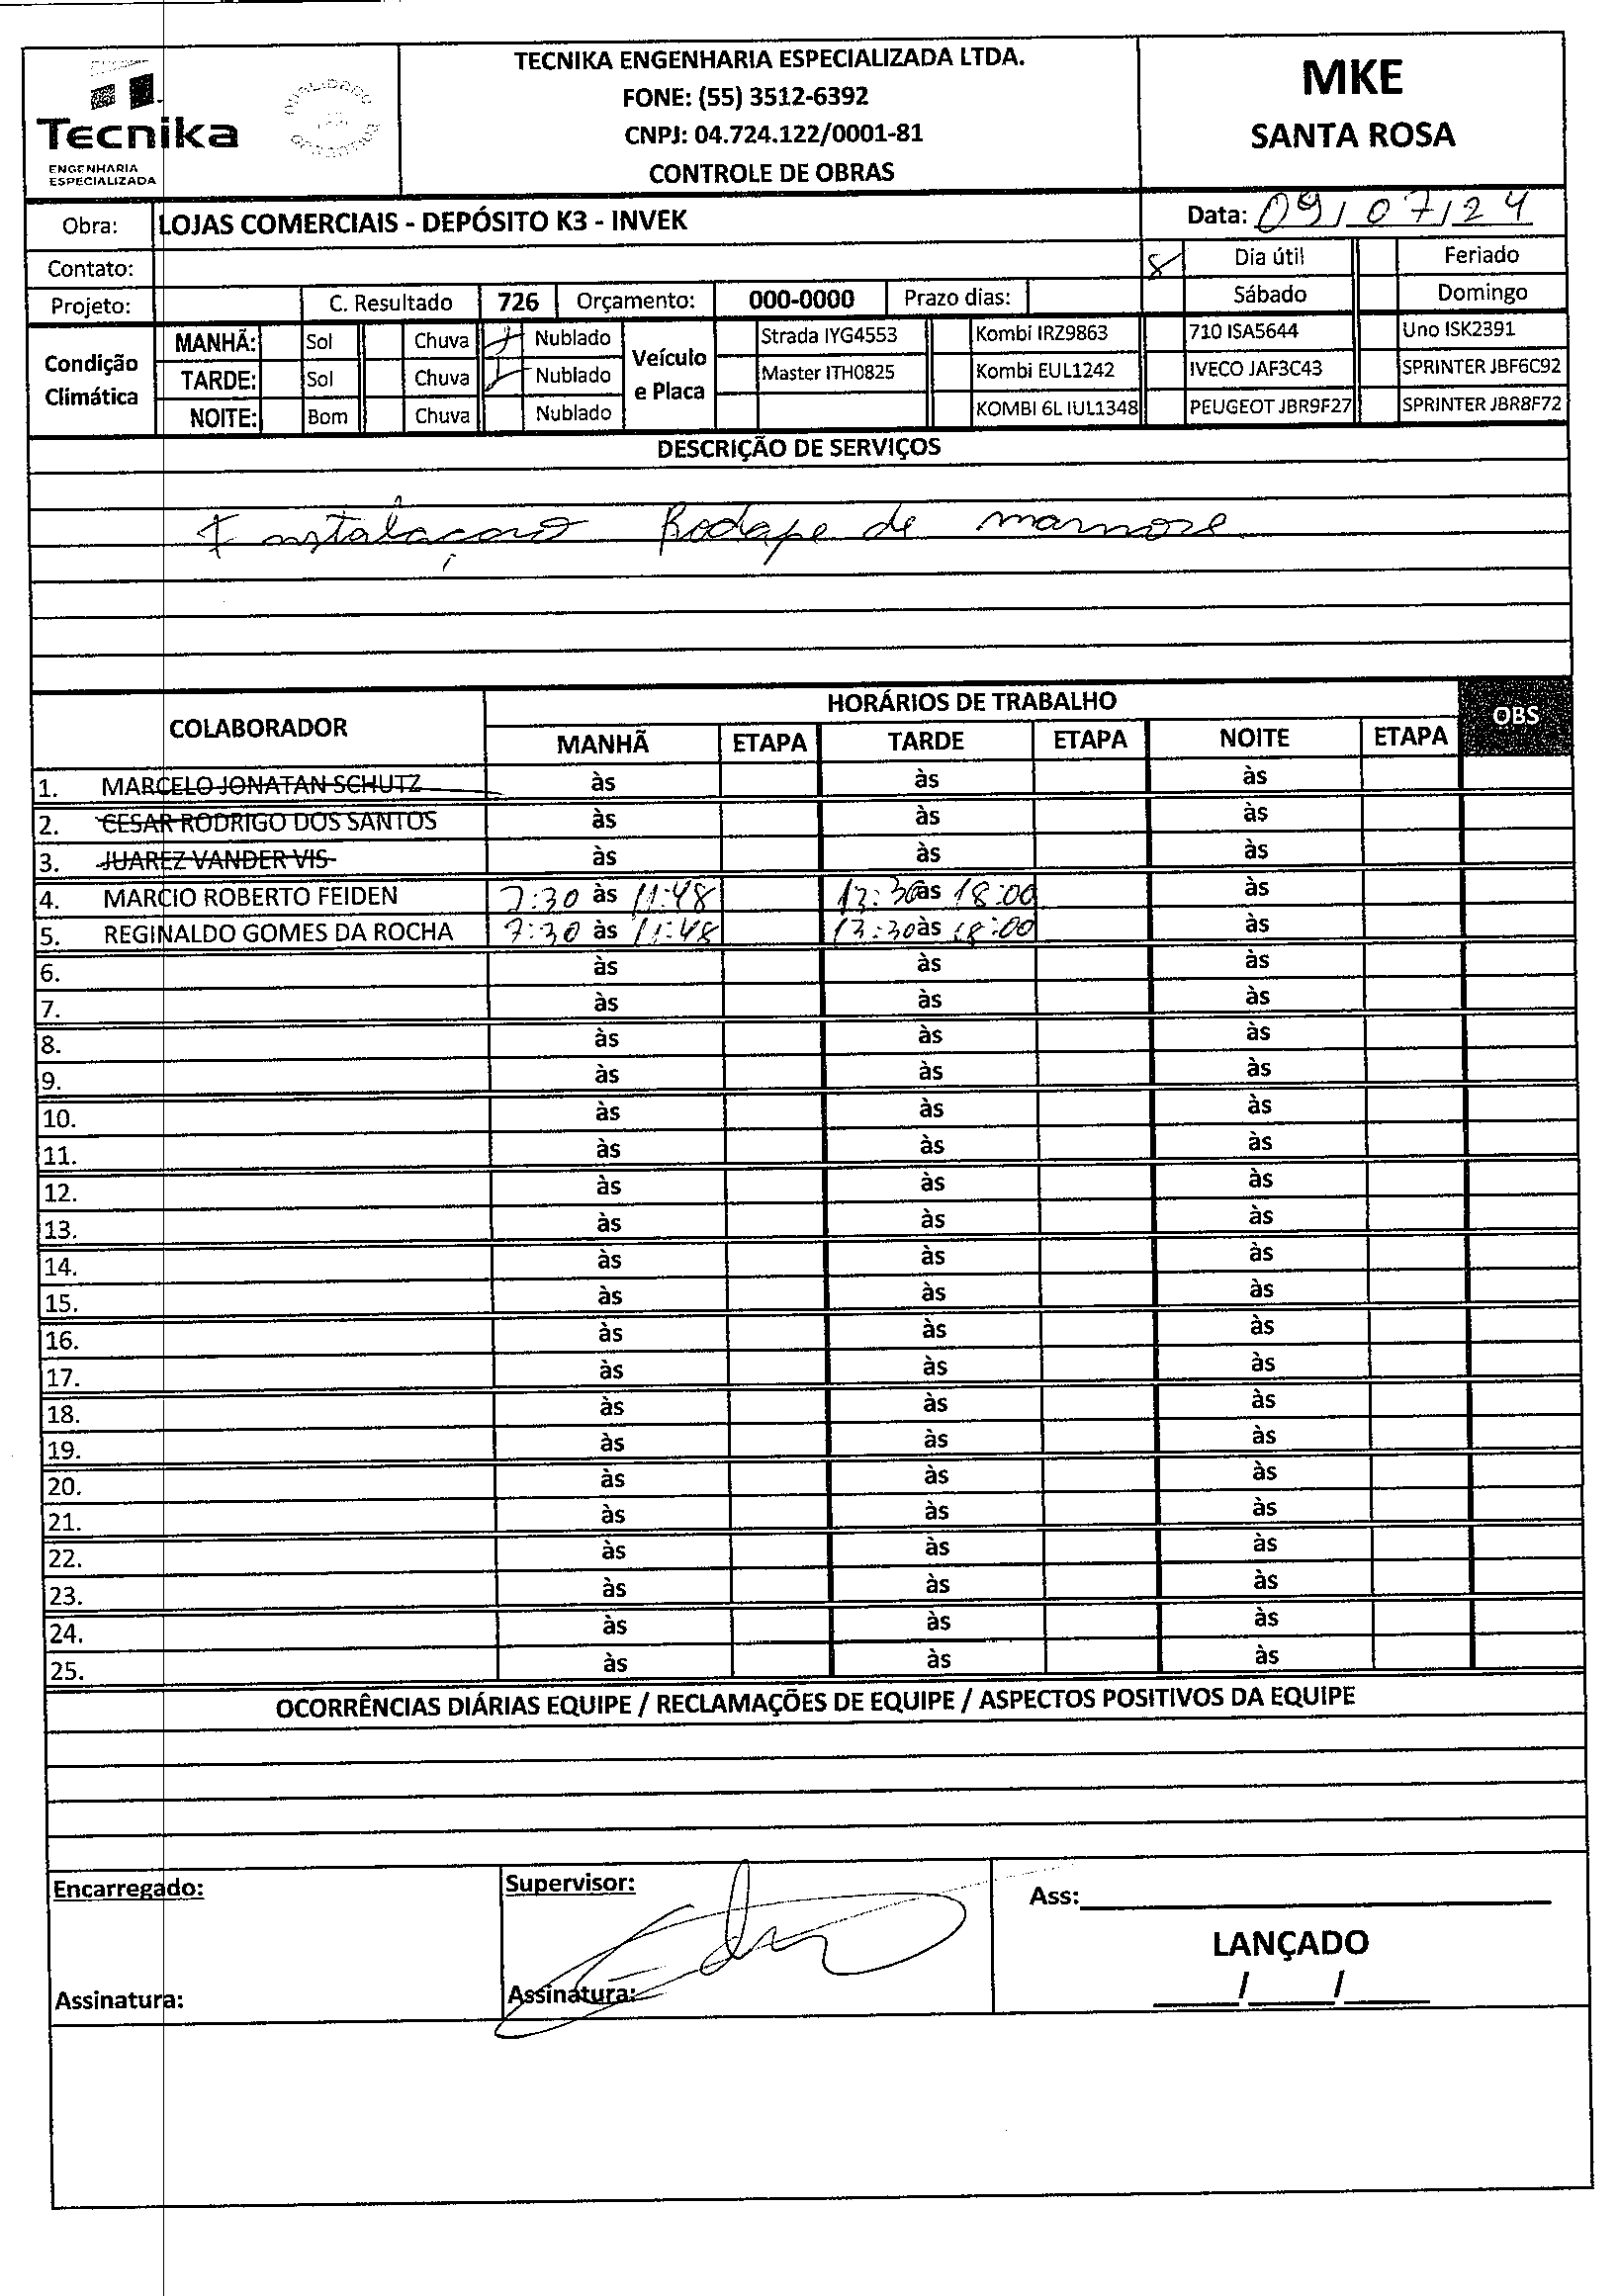 TECNIKA ENGENHARIA ESPECIALIZADA LTDA.
FONE: (55) 3512-6392
CNPJ: 04.724.122/0001-81
CONTROLE DE OBRAS
Tecnika
ENGENHARIA
ESPECIALIZADA
QUALIDADE
MKE
SANTA ROSA
Obra: LOJAS COMERCIAIS - DEPÓSITO K3 - INVEK
Data: 09/07/24
Contato:
Dia útil Feriado
Projeto: C. Resultado 726 Orçamento: 000-0000 Prazo dias:
Sábado Domingo
Condição Climática
MANHÃ: Sol Chuva Nublado
TARDE: Sol Chuva Nublado
NOITE: Bom Chuva Nublado
Veículo e Placa
Strada IYG4553 Kombi IRZ9863 710 ISA5644 Uno ISK2391
Master ITH0825 Kombi EUL1242 IVECO JAF3C43 SPRINTER JBF6C92
KOMBI 6L IUL1348 PEUGEOT JBR9F27 SPRINTER JBR8F72
DESCRIÇÃO DE SERVIÇOS
Instalaçaao Rodape de marmore
COLABORADOR HORÁRIOS DE TRABALHO OBS
MANHÃ ETAPA TARDE ETAPA NOITE ETAPA
1. MARCELO JONATAN SCHUTZ às às às
2. CESAR RODRIGO DOS SANTOS às às às
3. JUAREZ VANDER VIS às às às
4. MARCIO ROBERTO FEIDEN 7:30 às 11:48 13:30 às 18:00 às
5. REGINALDO GOMES DA ROCHA 7:30 às 11:48 13:30 às 18:00 às
6. às às às
7. às às às
8. às às às
9. às às às
10. às às às
11. às às às
12. às às às
13. às às às
14. às às às
15. às às às
16. às às às
17. às às às
18. às às às
19. às às às
20. às às às
21. às às às
22. às às às
23. às às às
24. às às às
25. às às às
OCORRÊNCIAS DIÁRIAS EQUIPE / RECLAMAÇÕES DE EQUIPE / ASPECTOS POSITIVOS DA EQUIPE
Encarregado:
Assinatura:
Supervisor:
Assinatura:
Ass:
LANÇADO
/ /